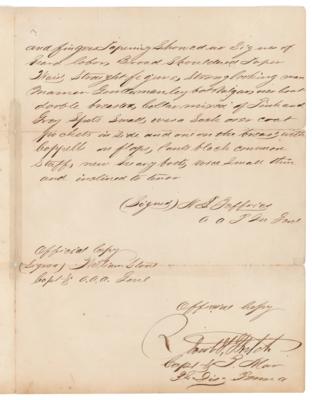 and fingers tapering showed no signes of
hard labor, Broad Shouldered Taper
Waist, Straight figure, Strong looking man
Manner Gentlemanly but Vulgar, over coat
double breasted, Collar mixed of Pink and
Gray Spots Small, was a Sack over coat
pockets in Side and one on the breast with
lappells or flaps, Pants black common
Stuff, new heavy boots, voice Small thin
and inclined to tenor
(Signed) H S
Official Copy
(Signed) William Stone
Capt & A.A.A. Genl
Official Copy
Capt &